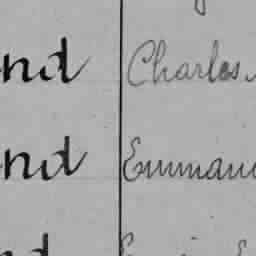 nd Charles
nd Emmanu
nd